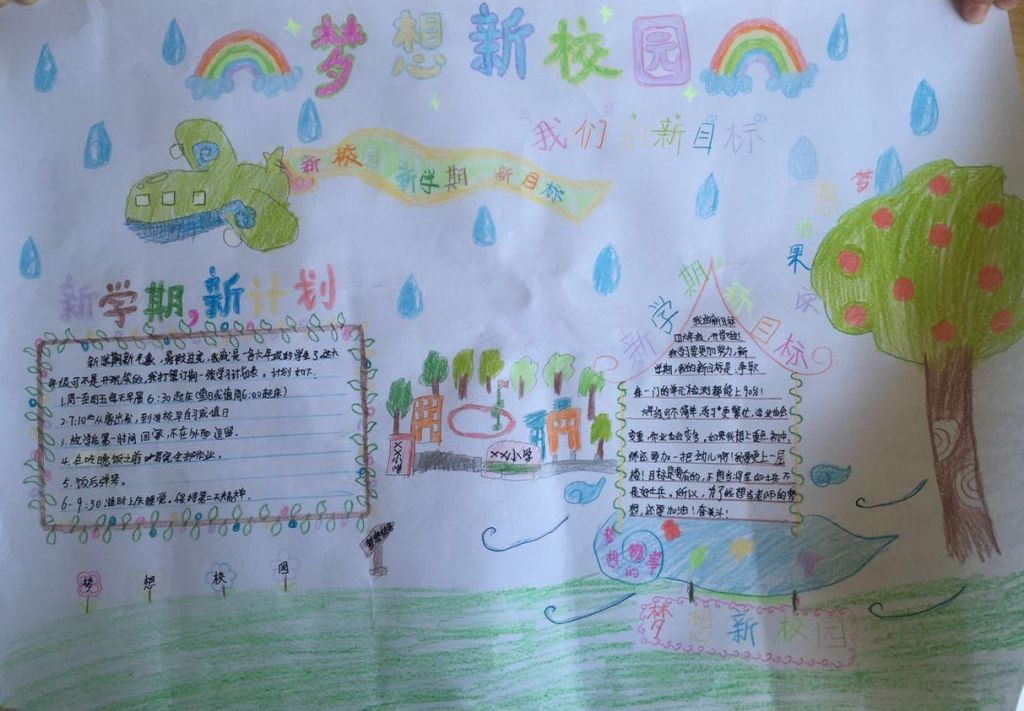 梦想新校园
我们的新目标
新校园 新学期 新目标
梦想的果实
新学期,新计划
新学期新气象,暑假过完,我就是一名六年级的学生了,这六
年级可不是开玩笑的,我打算订期一张学习计划表。计划如下.
1.周一至周五每天早晨6:30起床(里日或值周6:00起床)
2.7:10从家出发,到学校早自习或值日
3.放学后第一时间回家,不在外面逗留.
4.在吃晚饭之前写完全部作业。
5.饭后弹琴。
6.9:30准时上床睡觉。保持第二天精神.
新学期新目标
我的新目标
六年级,开学啦!
我学习要更加努力,新
学期,我的新目标是:争取
每一门的单元检测都能上90分!
六年级可不简单,学习更繁忙,作业也会
变重,作业也会变多,如果我想上重点初中,
那还要加一把劲儿啊!我要更上一层
楼!目标是要有的,不想当将军的士兵不
是好士兵。所以,为了我想当老师的梦
想,还要加油!奋斗!
XX小学
XX小学
梦想校园
梦想的故事
梦想新校园